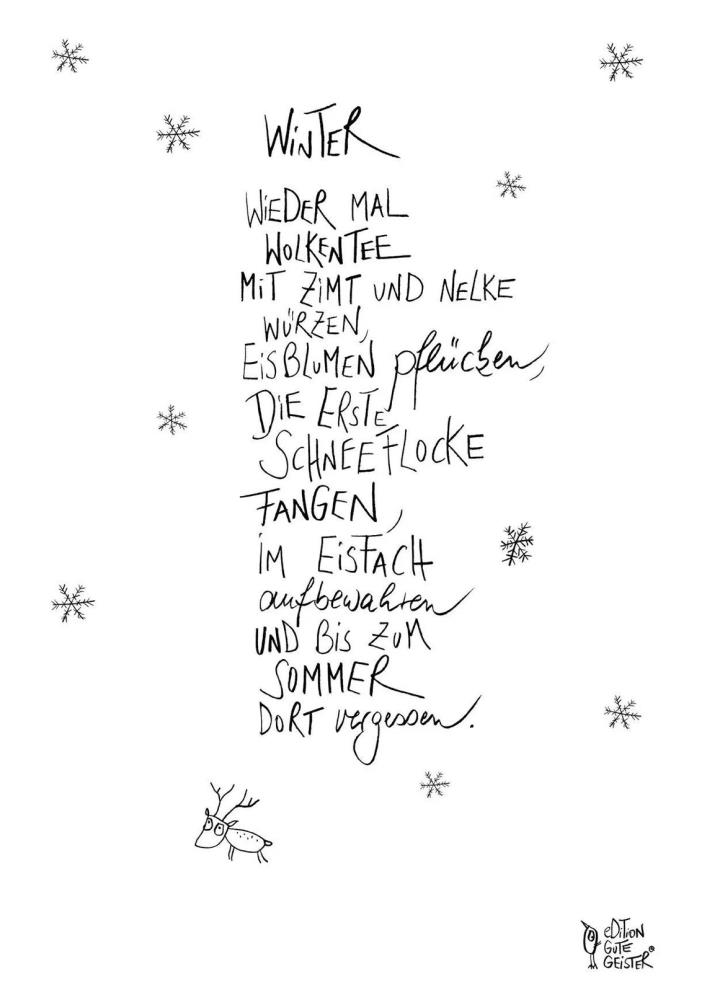 WiNTER
WiEDER MAL
WOLKENTEE
MiT ZiMT UND NELKE
WÜRZEN,
EiSBLUMEN pflücken,
DiE ERSTE
SCHNEEFLOCKE
FANGEN,
iM EiSFACH
aufbewahren
UND BiS ZUM
SOMMER
DORT vergessen.
eDiTiON
GUTE
GEiSTER®